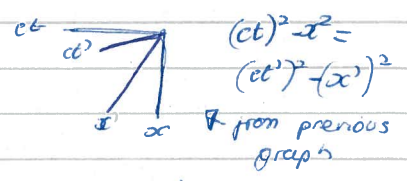 ct
ct'
x'
x
(ct)² - x² =
(ct')² - (x')²
from previous
graph